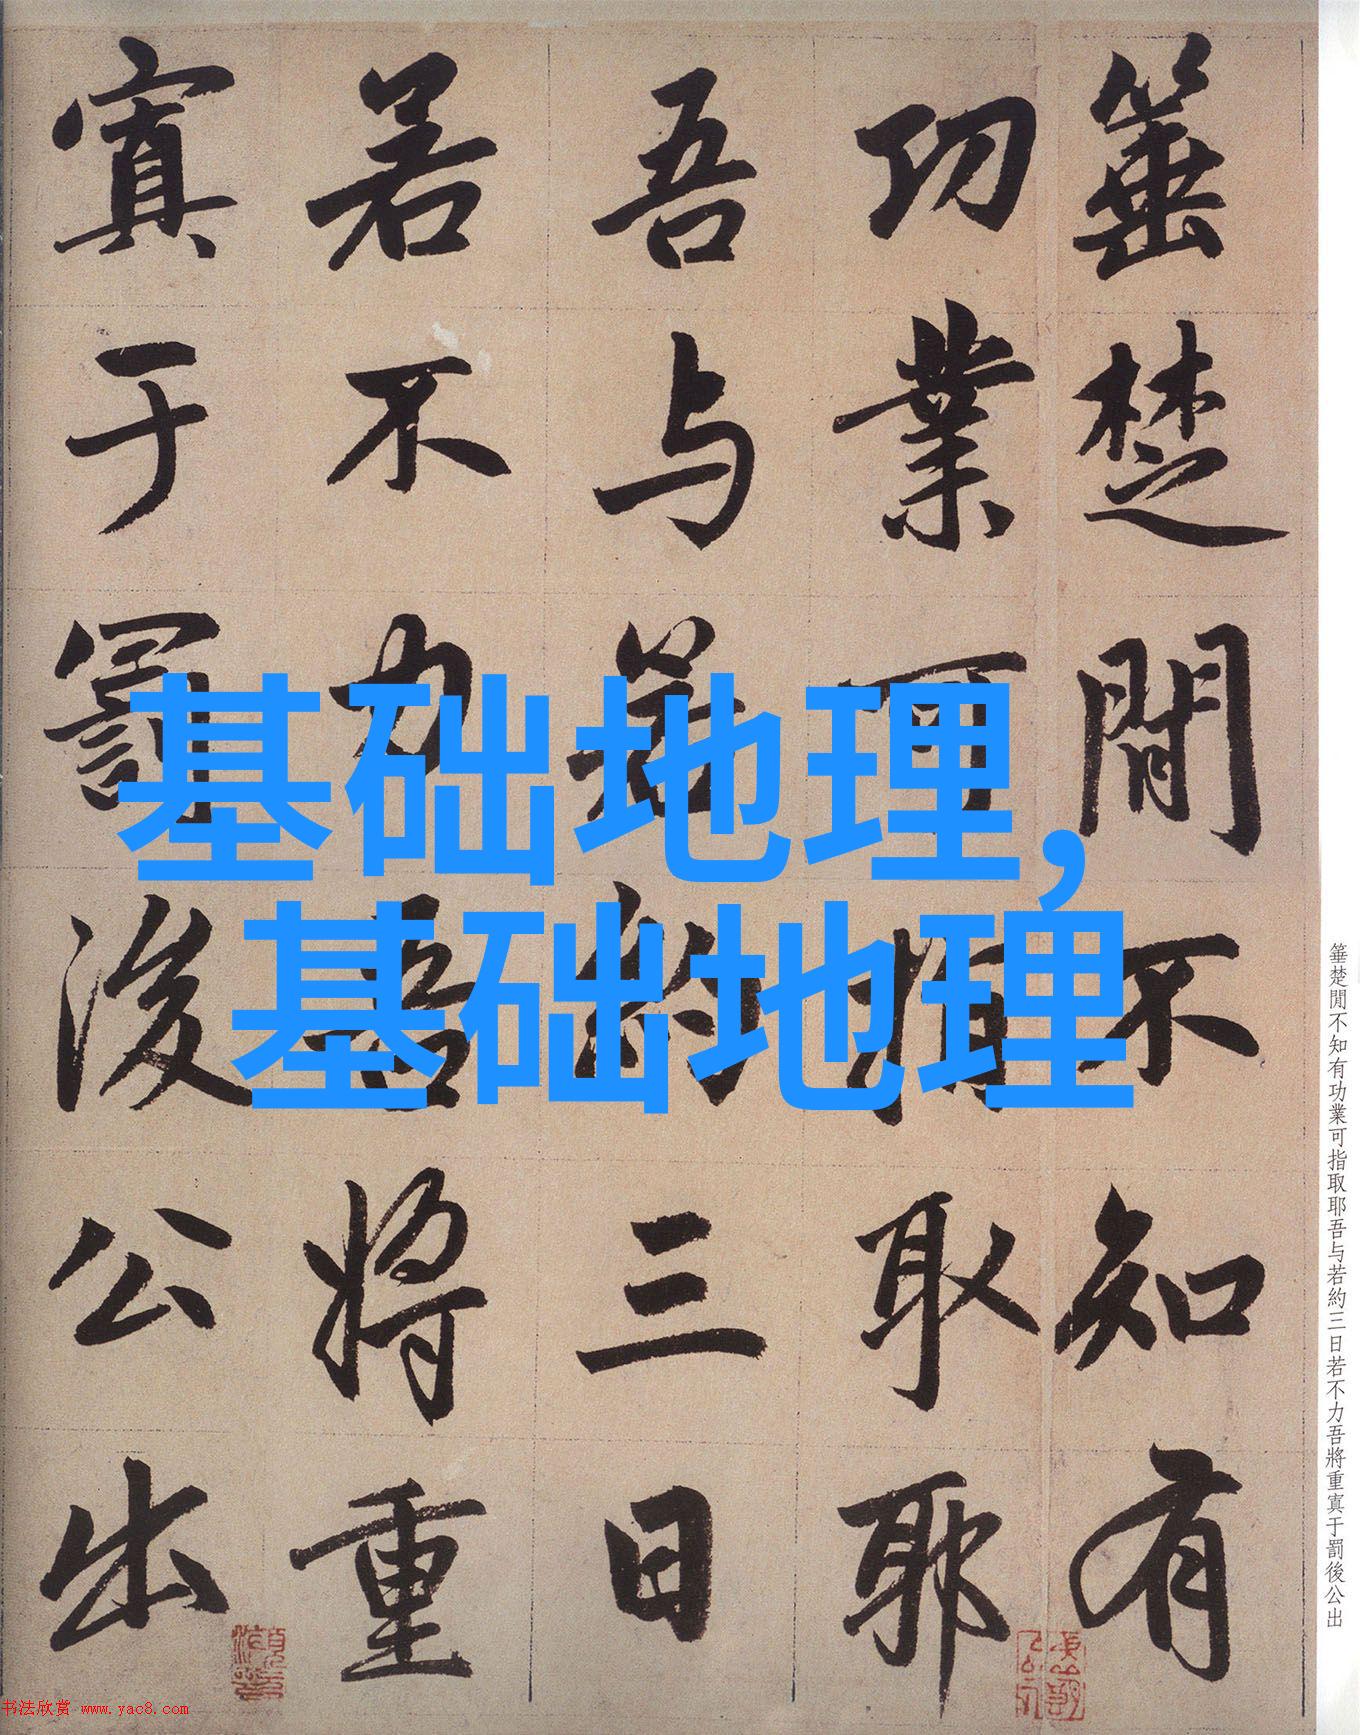 箠楚閒不知有
功業可指取耶
吾与若約三日
若不力吾將重
寘于罰後公出
基础地理,
基础地理
箠楚閒不知有功業可指取耶吾与若約三日若不力吾將重寘于罰後公出
书法欣赏 www.yac8.com